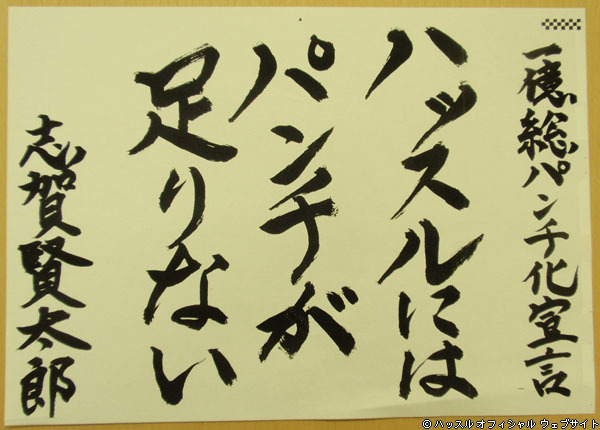 一億総パンチ化宣言
ハッスルには
パンチが
足りない
志賀賢太郎
© ハッスル オフィシャル ウェブサイト